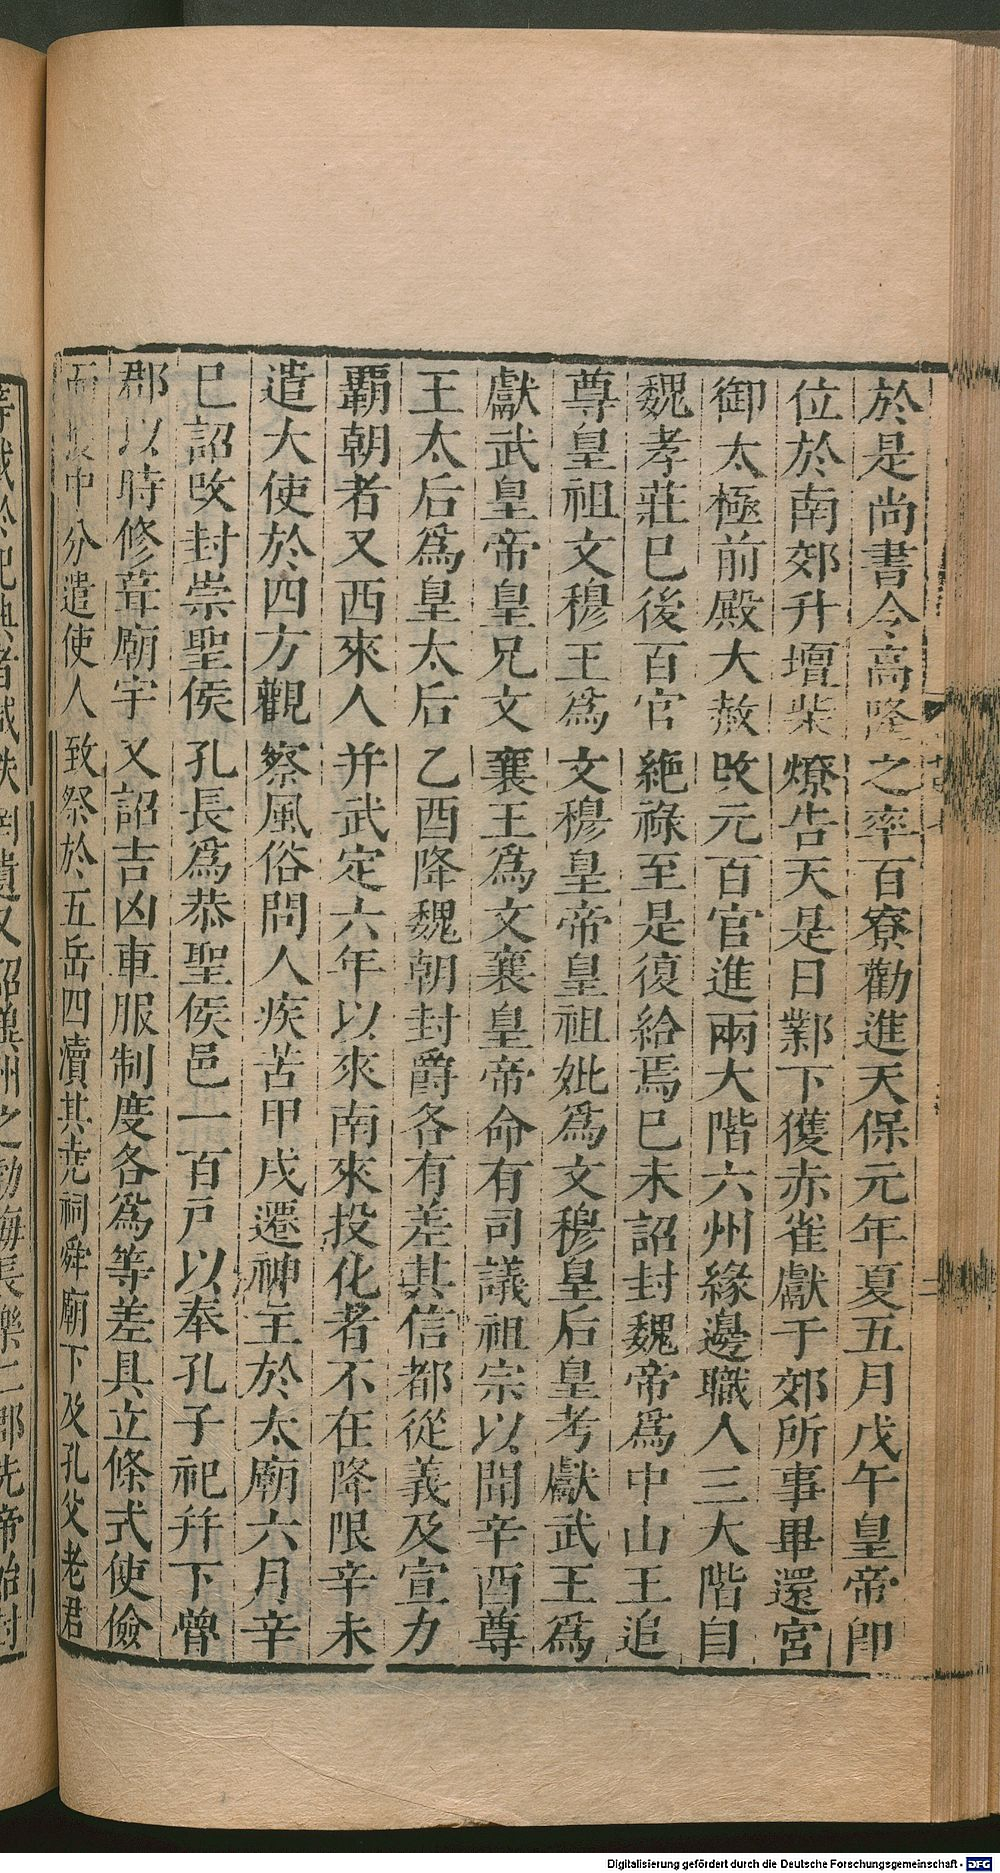 於是尚書令高隆之率百寮勸進天保元年夏五月戊午皇帝即
位於南郊升壇柴燎告天是日鄴下獲赤雀獻于郊所事畢還宮
御太極前殿大赦改元百官進兩大階六州緣邊職人三大階自
魏孝莊巳後百官絶祿至是復給焉巳未詔封魏帝爲中山王追
尊皇祖文穆王爲文穆皇帝皇祖妣爲文穆皇后皇考獻武王爲
獻武皇帝皇兄文襄王爲文襄皇帝命有司議祖宗以聞辛酉尊
王太后爲皇太后乙酉降魏朝封爵各有差其信都從義及宣力
覇朝者又西來人并武定六年以來南來投化者不在降限辛未
遣大使於四方觀察風俗問人疾苦甲戌遷神主於太廟六月辛
巳詔改封崇聖侯孔長爲恭聖侯邑一百戸以奉孔子祀并下曾
郡以時修葺廟宇又詔吉凶車服制度各爲等差具立條式使儉
而 中分遣使人致祭於五岳四瀆其尭祠舜廟下及孔父老君
等載於祀典者咸秩罔遺又詔冀州之勃海長樂二郡先帝始封
Digitalisierung gefördert durch die Deutsche Forschungsgemeinschaft - DFG